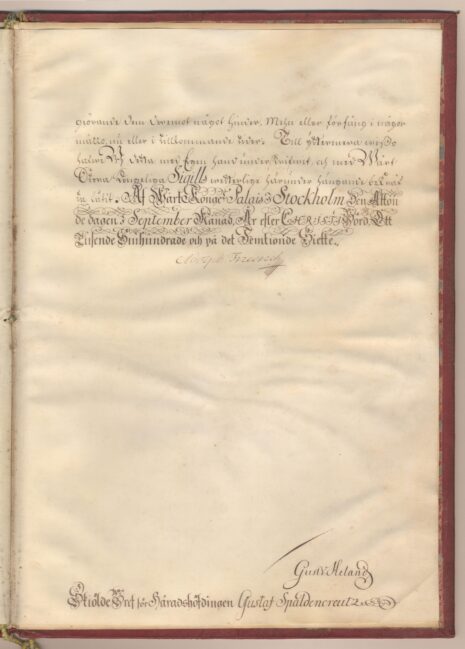 giörande dem deremot något hinder, Mehn eller förfång i någor
måtto, nu eller i tillkommande tider. Till yttermera wißo
hafwe Wij detta med Egen hand underskrifwit och med Wårt
Stora Kongeliga Sigill wetterlige härunder hängande bekräf
ta låtit. Af Wårt Kongel. Palais i Stockholm den Otton
de dagen i September Månad, År efter CHRISTI Börd, Ett
Tusende Siuhundrade och på det Femtionde Siette.
Adolph Friedrich
Skiölde Bref för Häradshöfdingen Gustaf Spaldencreutz